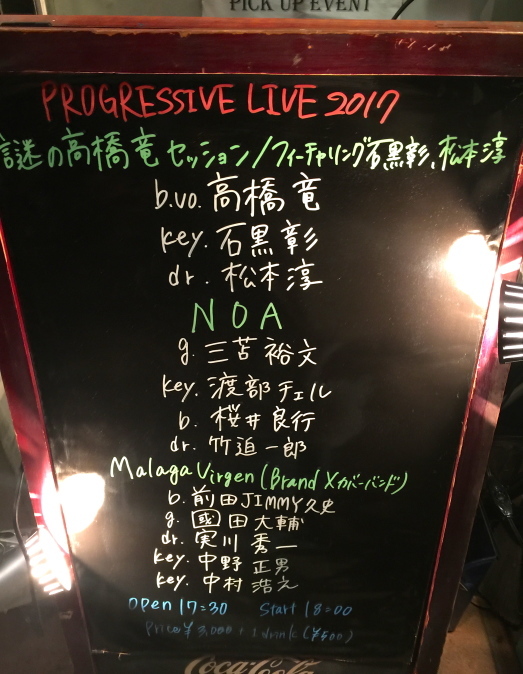 PICK UP EVENT
PROGRESSIVE LIVE 2017
謎の高橋竜セッション/フィーチャリング石黒彰、松本淳
b.vo. 高橋 竜
key. 石黒 彰
dr. 松本 淳
NOA
g. 三苫 裕文
key. 渡部 チェル
b. 桜井 良行
dr. 竹迫 一郎
Malaga Virgen (Brand X カバーバンド)
b. 前田JIMMY久史
g. 國田 大輔
dr. 実川 秀一
key. 中野 正男
key. 中村 浩之
open 17:30 Start 18:00
Price ¥3,000 + 1 drink (¥500)
Coca-Cola